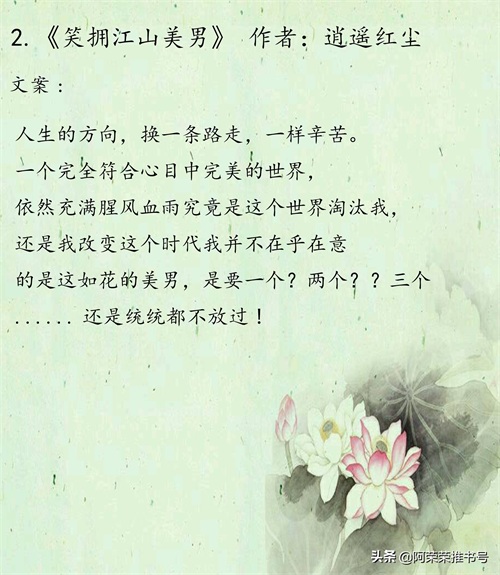 2.《笑拥江山美男》 作者：逍遥红尘
文案：
人生的方向，换一条路走，一样辛苦。
一个完全符合心目中完美的世界，
依然充满腥风血雨究竟是这个世界淘汰我，
还是我改变这个时代我并不在乎在意
的是这如花的美男，是要一个？两个？？三个
...... 还是统统都不放过！
头条 @阿荣荣推书号